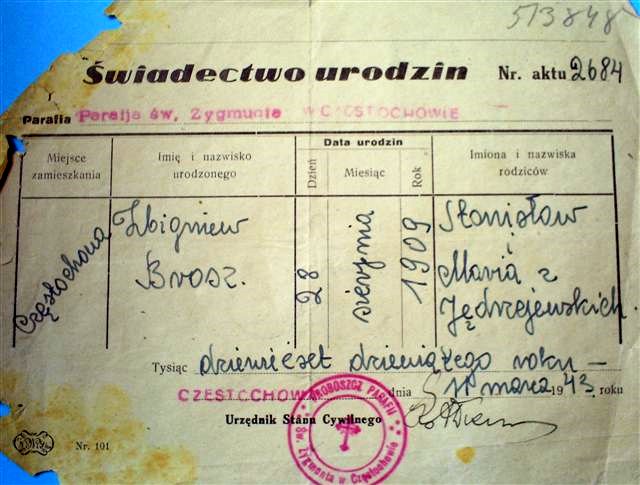 513848
Świadectwo urodzin Nr. aktu 2684
Parafia Parafja św. Zygmunta W CZĘSTOCHOWIE
Miejsce zamieszkania
Imię i nazwisko urodzonego
Data urodzin
Dzień
Miesiąc
Rok
Imiona i nazwiska rodziców
Częstochowa
Zbigniew
Brosz.
28
sierpnia
1909
Stanisław
i
Maria z
Jędrzejewskich.
Tysiąc dziewięćset dziewiątego roku —
CZESTOCHOWA dnia marca 1943 roku
Urzędnik Stanu Cywilnego
PROBOSZCZ PARAFII św. Zygmunta w Częstochowie
Nr. 101